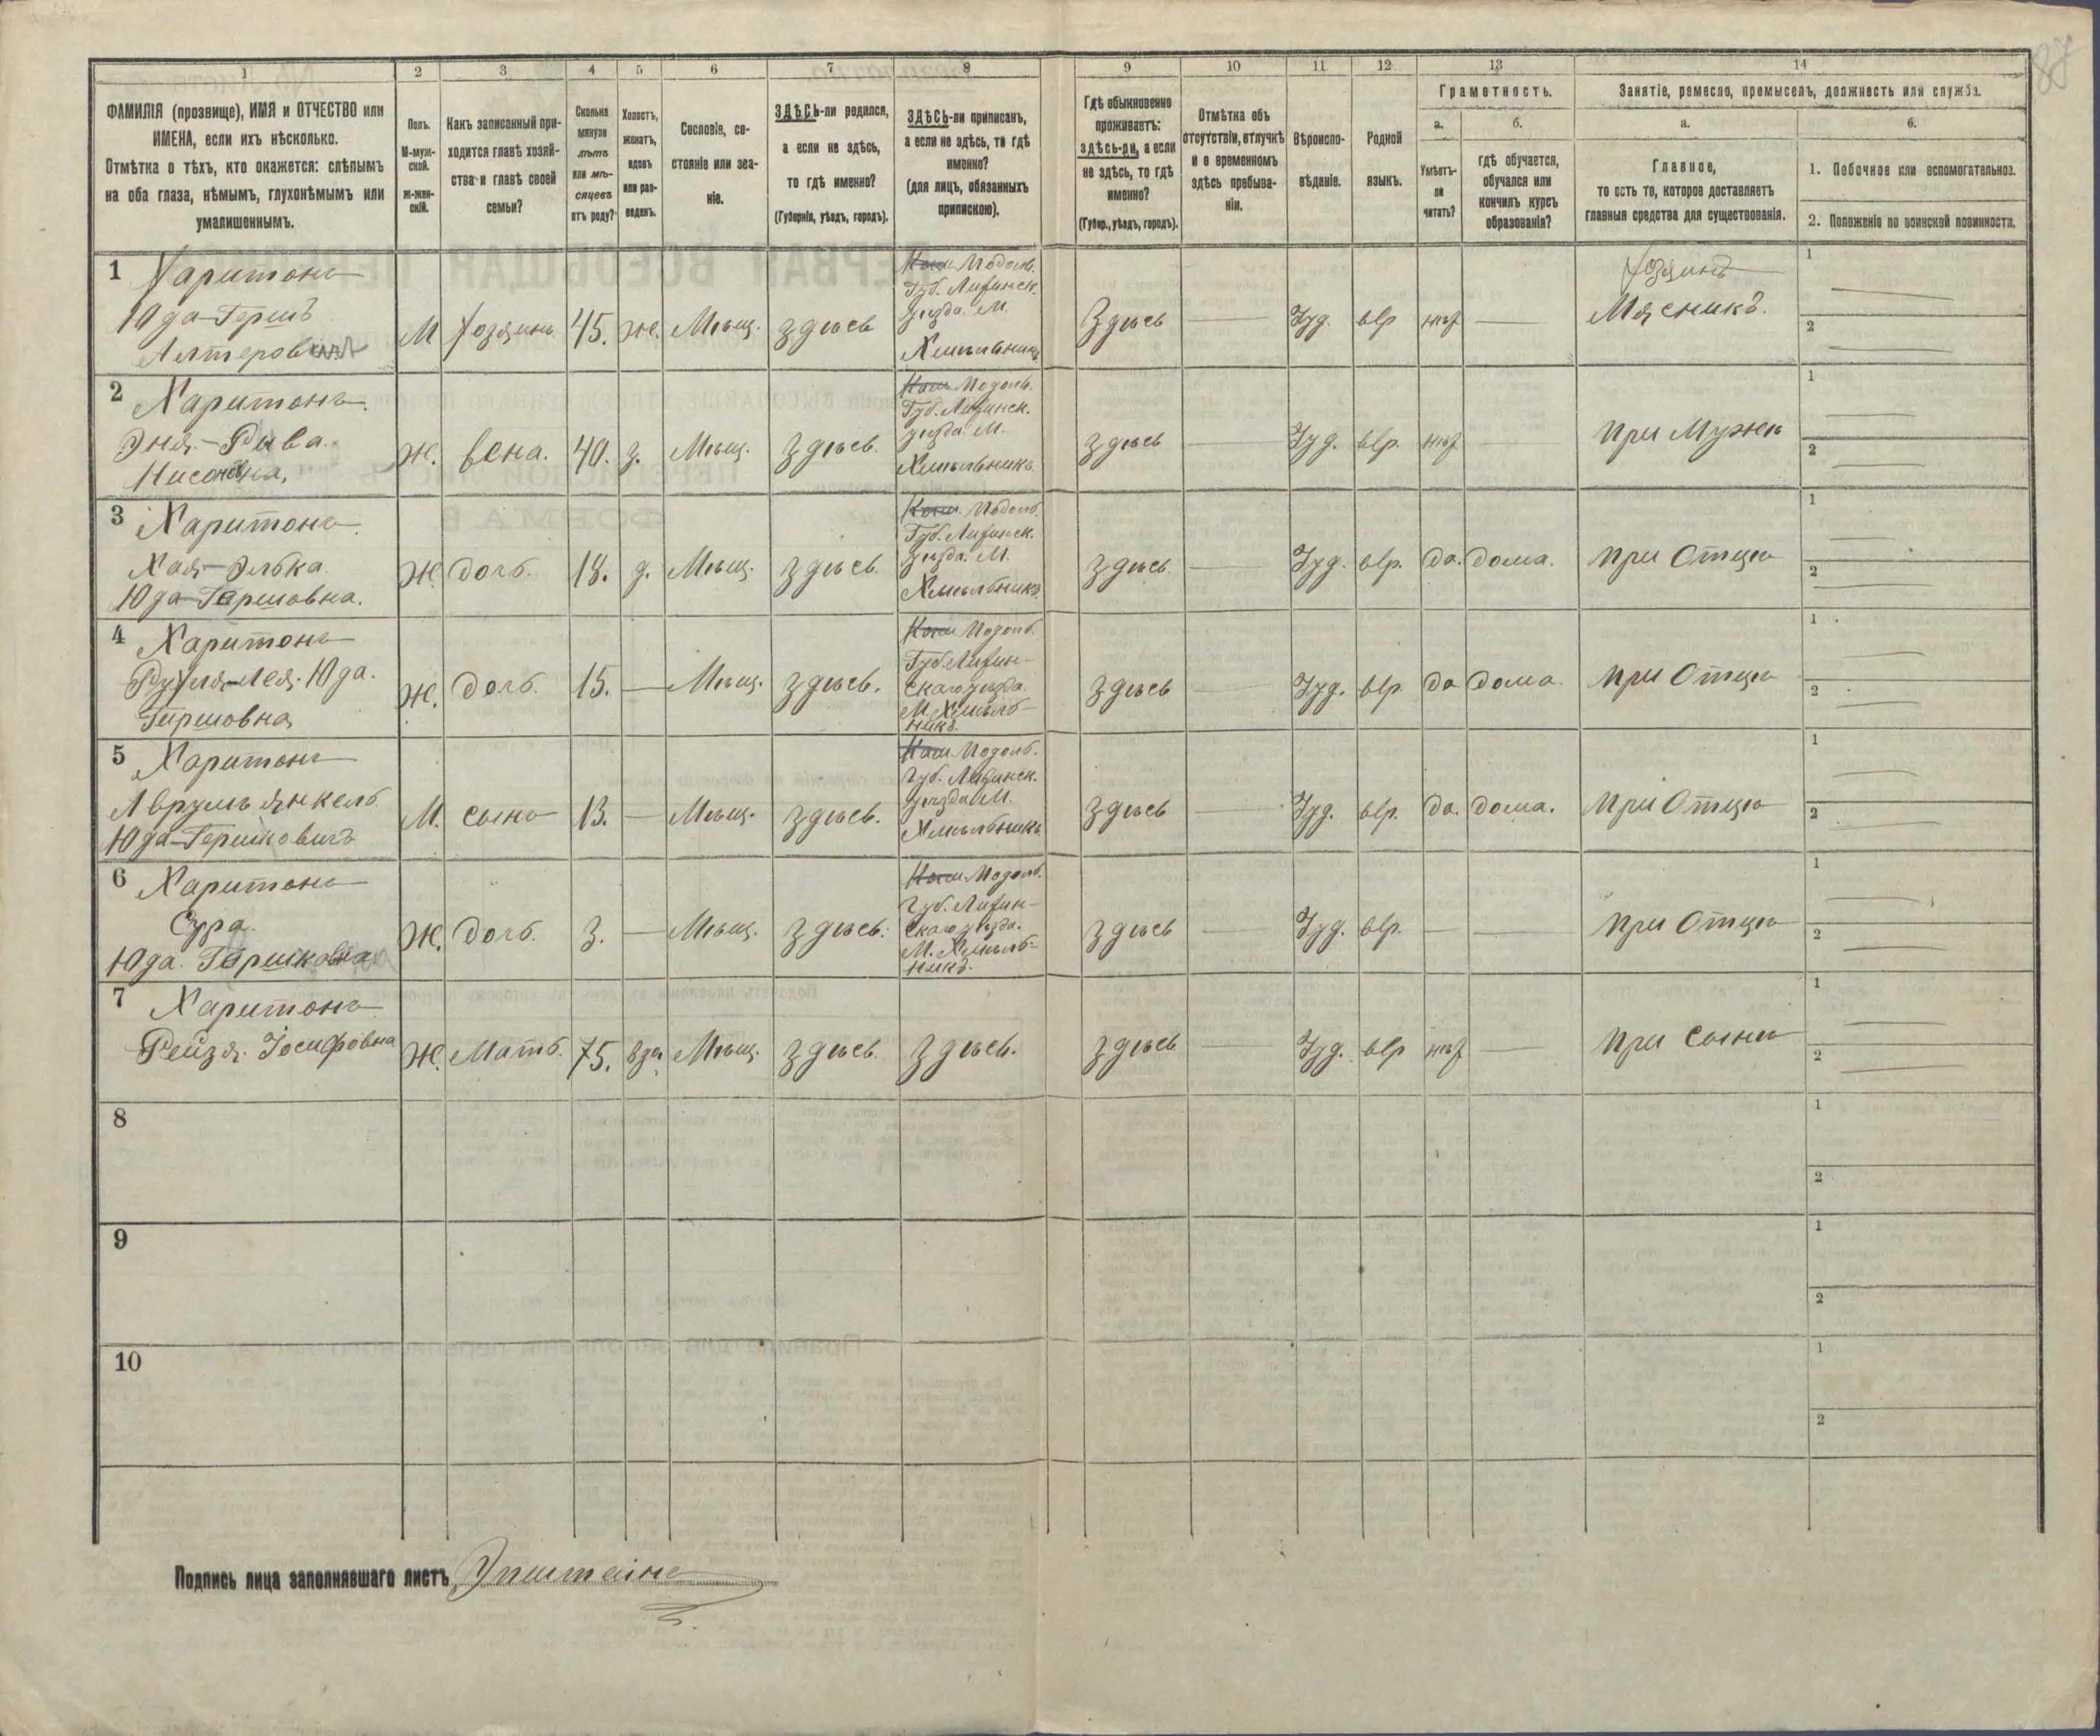 87
1 2 3 4 5 6 7 8 9 10 11 12 13 14
ФАМИЛІЯ (прозвище), ИМЯ и ОТЧЕСТВО или
ИМЕНА, если ихъ нѣсколько.
Отмѣтка о тѣхъ, кто окажется: слѣпымъ
на оба глаза, нѣмымъ, глухонѣмымъ или
умалишеннымъ.
Полъ.
М-муж-
ской.
Ж-жен-
скій.
Какъ записанный при-
ходится главѣ хозяй-
ства и главѣ своей
семьи?
Сколько
минуло
лѣтъ
или мѣ-
сяцевъ
отъ роду?
Холостъ,
женатъ,
вдовъ
или раз-
веденъ.
Сословіе, со-
стояніе или зва-
ніе.
ЗДѢСЬ-ли родился,
а если не здѣсь,
то гдѣ именно?
(Губернія, уѣздъ, городъ).
ЗДѢСЬ-ли приписанъ,
а если не здѣсь, то гдѣ
именно?
(для лицъ, обязанныхъ
припискою).
Гдѣ обыкновенно
проживаетъ:
здѣсь-ли, а если
не здѣсь, то гдѣ
именно?
(Губер., уѣздъ, городъ).
Отмѣтка объ
отсутствіи, отлучкѣ
и о временномъ
здѣсь пребыва-
ніи.
Вѣроиспо-
вѣданіе.
Родной
языкъ.
Грамотность.
а.
Умѣетъ-
ли
читать?
б.
гдѣ обучается,
обучался или
кончилъ курсъ
образованія?
Занятіе, ремесло, промыселъ, должность или служба.
а.
Главное,
то есть то, которое доставляетъ
главныя средства для существованія.
б.
1. Побочное или вспомогательное.
2. Положеніе по воинской повинности.
1 Харитонъ
Юда-Гершъ
Алтеровичъ
М Хозяинъ 45. ж. Мѣщ. здѣсь
Подоль.
Губ. Литинск.
уѣзда. М.
Хмѣльникъ
Здѣсь — Іуд. евр нѣт —
Хозяинъ
Мясникъ.
1
2
2 Харитонъ.
Эня-Рива.
Нисоновна,
Ж. жена. 40. з. Мѣщ. здѣсь.
Подоль.
Губ. Литинск.
уѣзда М.
Хмѣльникъ
здѣсь — Іуд. евр. нѣт — при Мужѣ
1
2
3 Харитонъ.
Хая-Элька.
Юда-Гершовна.
Ж. дочь. 18. д. Мѣщ. здѣсь.
Подоль.
Губ. Литинск.
уѣзда. М.
Хмѣльникъ
здѣсь. — Іуд. евр. да. дома. при Отцѣ
1
2
4 Харитонъ
Рухля-Лея. Юда.
Гершовна
Ж. дочь. 15. — Мѣщ. здѣсь.
Подоль.
Губ. Литин-
скаго уѣзда.
М. Хмѣль-
никъ.
здѣсь — Іуд. евр. да дома при Отцѣ
1
2
5 Харитонъ
Аврумъ Янкель.
Юда-Гершковичъ
М. сынъ 13. — Мѣщ. здѣсь.
Подоль.
Губ. Литинск.
уѣзда М.
Хмѣльникъ
здѣсь — Іуд. евр. да. дома. при Отцѣ
1
2
6 Харитонъ
Сура.
Юда. Гершковна
Ж. дочь. 3. — Мѣщ. здѣсь.
Подоль.
Губ. Литин-
скаго уѣзда.
М. Хмѣль-
никъ.
здѣсь — Іуд. евр. — — при Отцѣ
1
2
7 Харитонъ
Рейзя. Іосифовна
Ж. Мать. 75. вда Мѣщ. здѣсь. здѣсь. здѣсь — Іуд. евр нѣт — при сынѣ
1
2
8
1
2
9
1
2
10
1
2
Подпись лица заполнявшаго листъ Эпштейнъ